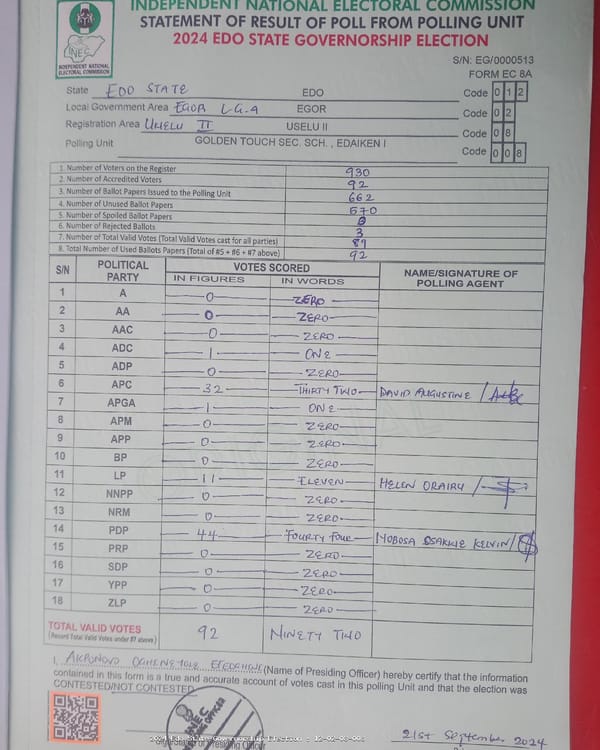 INDEPENDENT NATIONAL ELECTORAL COMMISSION
STATEMENT OF RESULT OF POLL FROM POLLING UNIT
2024 EDO STATE GOVERNORSHIP ELECTION
INEC
INDEPENDENT NATIONAL ELECTORAL COMMISSION
S/N: EG/0000513
FORM EC 8A
State EDO STATE EDO Code 0 1 2
Local Government Area EGOR L.G.A EGOR Code 0 2
Registration Area UMELU II USELU II Code 0 8
Polling Unit GOLDEN TOUCH SEC. SCH. , EDAIKEN I Code 0 0 8
1. Number of Voters on the Register 930
2. Number of Accredited Voters 92
3. Number of Ballot Papers Issued to the Polling Unit 662
4. Number of Unused Ballot Papers 570
5. Number of Spoiled Ballot Papers
6. Number of Rejected Ballots 3
7. Number of Total Valid Votes (Total Valid Votes cast for all parties) 89
8. Total Number of Used Ballot Papers (Total of #5 + #6 + #7 above) 92
S/N POLITICAL PARTY VOTES SCORED NAME/SIGNATURE OF POLLING AGENT
IN FIGURES IN WORDS
1 A 0 ZERO
2 AA 0 ZERO
3 AAC 0 ZERO
4 ADC 1 ONE
5 ADP 0 ZERO
6 APC 32 THIRTY TWO DAVID AUGUSTINE
7 APGA 1 ONE
8 APM 0 ZERO
9 APP 0 ZERO
10 BP 0 ZERO
11 LP 11 ELEVEN HELEN
12 NNPP 0 ZERO
13 NRM 0 ZERO
14 PDP 44 FOURTY FOUR IYOBOSA OSAKUE KELVIN
15 PRP 0 ZERO
16 SDP 0 ZERO
17 YPP 0 ZERO
18 ZLP 0 ZERO
TOTAL VALID VOTES 92 NINETY TWO
(Record Total Valid Votes under #7 above)
I, (Name of Presiding Officer) hereby certify that the information
contained in this form is a true and accurate account of votes cast in this polling Unit and that the election was
CONTESTED/NOT CONTESTED
Signature of Presiding Officer
21st September 2024